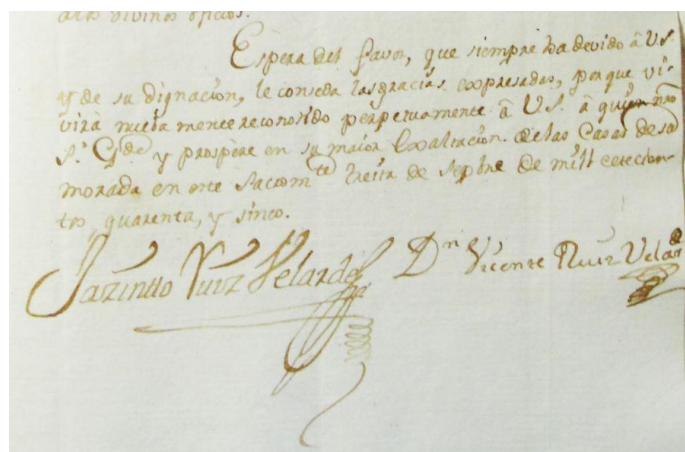 a los divinos oficios.
Espera del favor, que siempre ha devido â U.S.
y de su dignacion, le conseda las gracias expresadas, porque vi-
virà nueba mente reconosido perpetuamente â U.S. â quien nro
Sr. Gde. y prospere en su maior Exaltacion. de las Casas de su
morada en este Sacrom.te treita de Sepbre de mill setecien-
tos, quarenta, y sinco.
Jazintto Ruiz Velarde Dn Vicente Ruiz Velarde